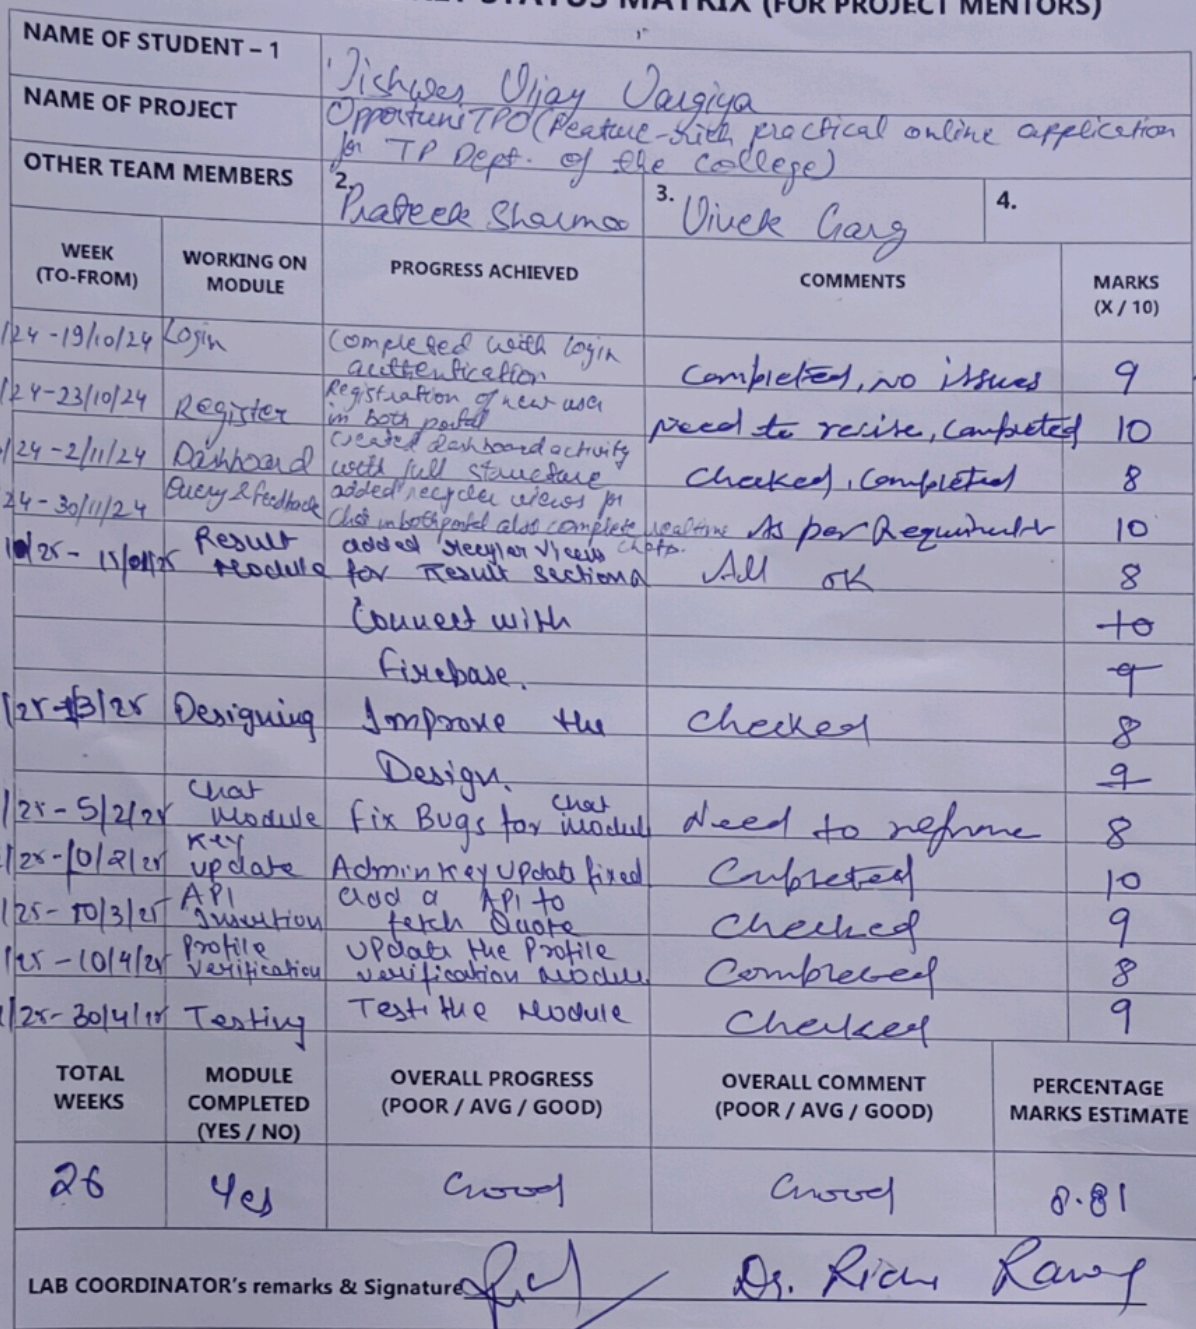 STATUS MATRIX (FOR PROJECT MENTORS)
NAME OF STUDENT – 1 Vishwes Vijay Vargiya
NAME OF PROJECT OpportuniTPO (Feature-rich practical online application
for TP Dept. of the College)
OTHER TEAM MEMBERS 2. Prateek Sharma 3. Vivek Garg 4.
WEEK (TO-FROM) WORKING ON MODULE PROGRESS ACHIEVED COMMENTS MARKS (X / 10)
/24 - 19/10/24 Login Completed with login authentication Completed, no issues 9
/24 - 23/10/24 Register Registration of new user in both portal need to revise, completed 10
/24 - 2/11/24 Dashboard Created dashboard activity with full structure Checked, completed 8
24 - 30/11/24 Query & feedback added recycler views for Chat in both portal also complete realtime chats. As per Requirement 10
/25 - 15/01/25 Result Module added recyler views for Result section All OK 8
Connect with 10
Firebase. 9
/25 - 3/25 Designing Improve the Checked 8
Design. 9
/25 - 5/2/25 Chat Module Fix Bugs for Chat Modul Need to 8
/25 - 10/2/25 Key update Admin Key Update fixed Completed 10
/25 - 10/3/25 API Insertion add a API to fetch Quote Checked 9
/25 - 10/4/25 Profile verification Update the Profile verification Module Completed 8
/25 - 30/4/25 Testing Test the Module Checked 9
TOTAL WEEKS MODULE COMPLETED (YES / NO) OVERALL PROGRESS (POOR / AVG / GOOD) OVERALL COMMENT (POOR / AVG / GOOD) PERCENTAGE MARKS ESTIMATE
26 Yes Good Good 8.81
LAB COORDINATOR's remarks & Signature Dr.